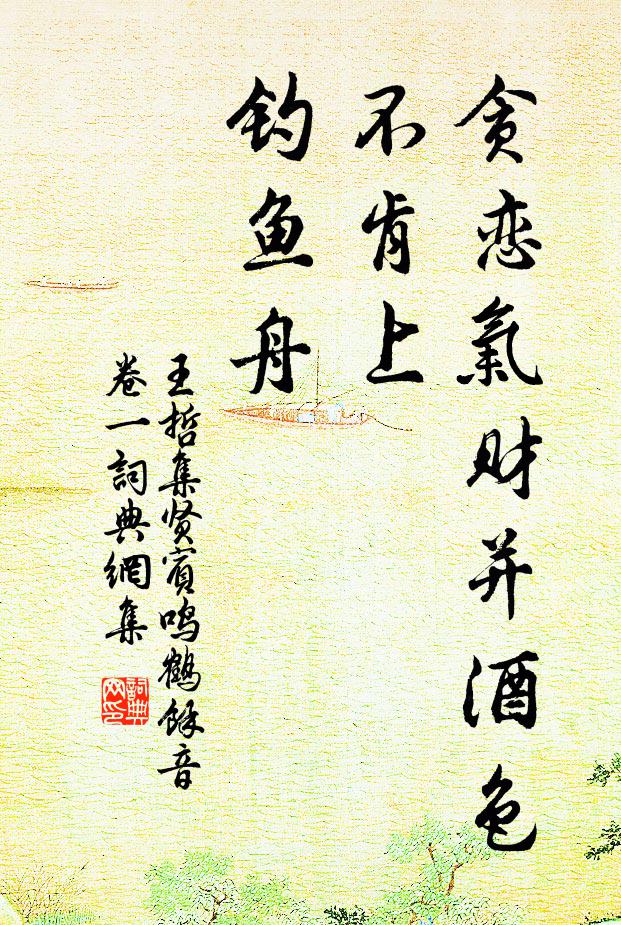 贪恋氣财并酒色
不肯上
钓鱼舟
王哲集贤宾鸣鹤馀音
卷一詞典網集
詞典網印